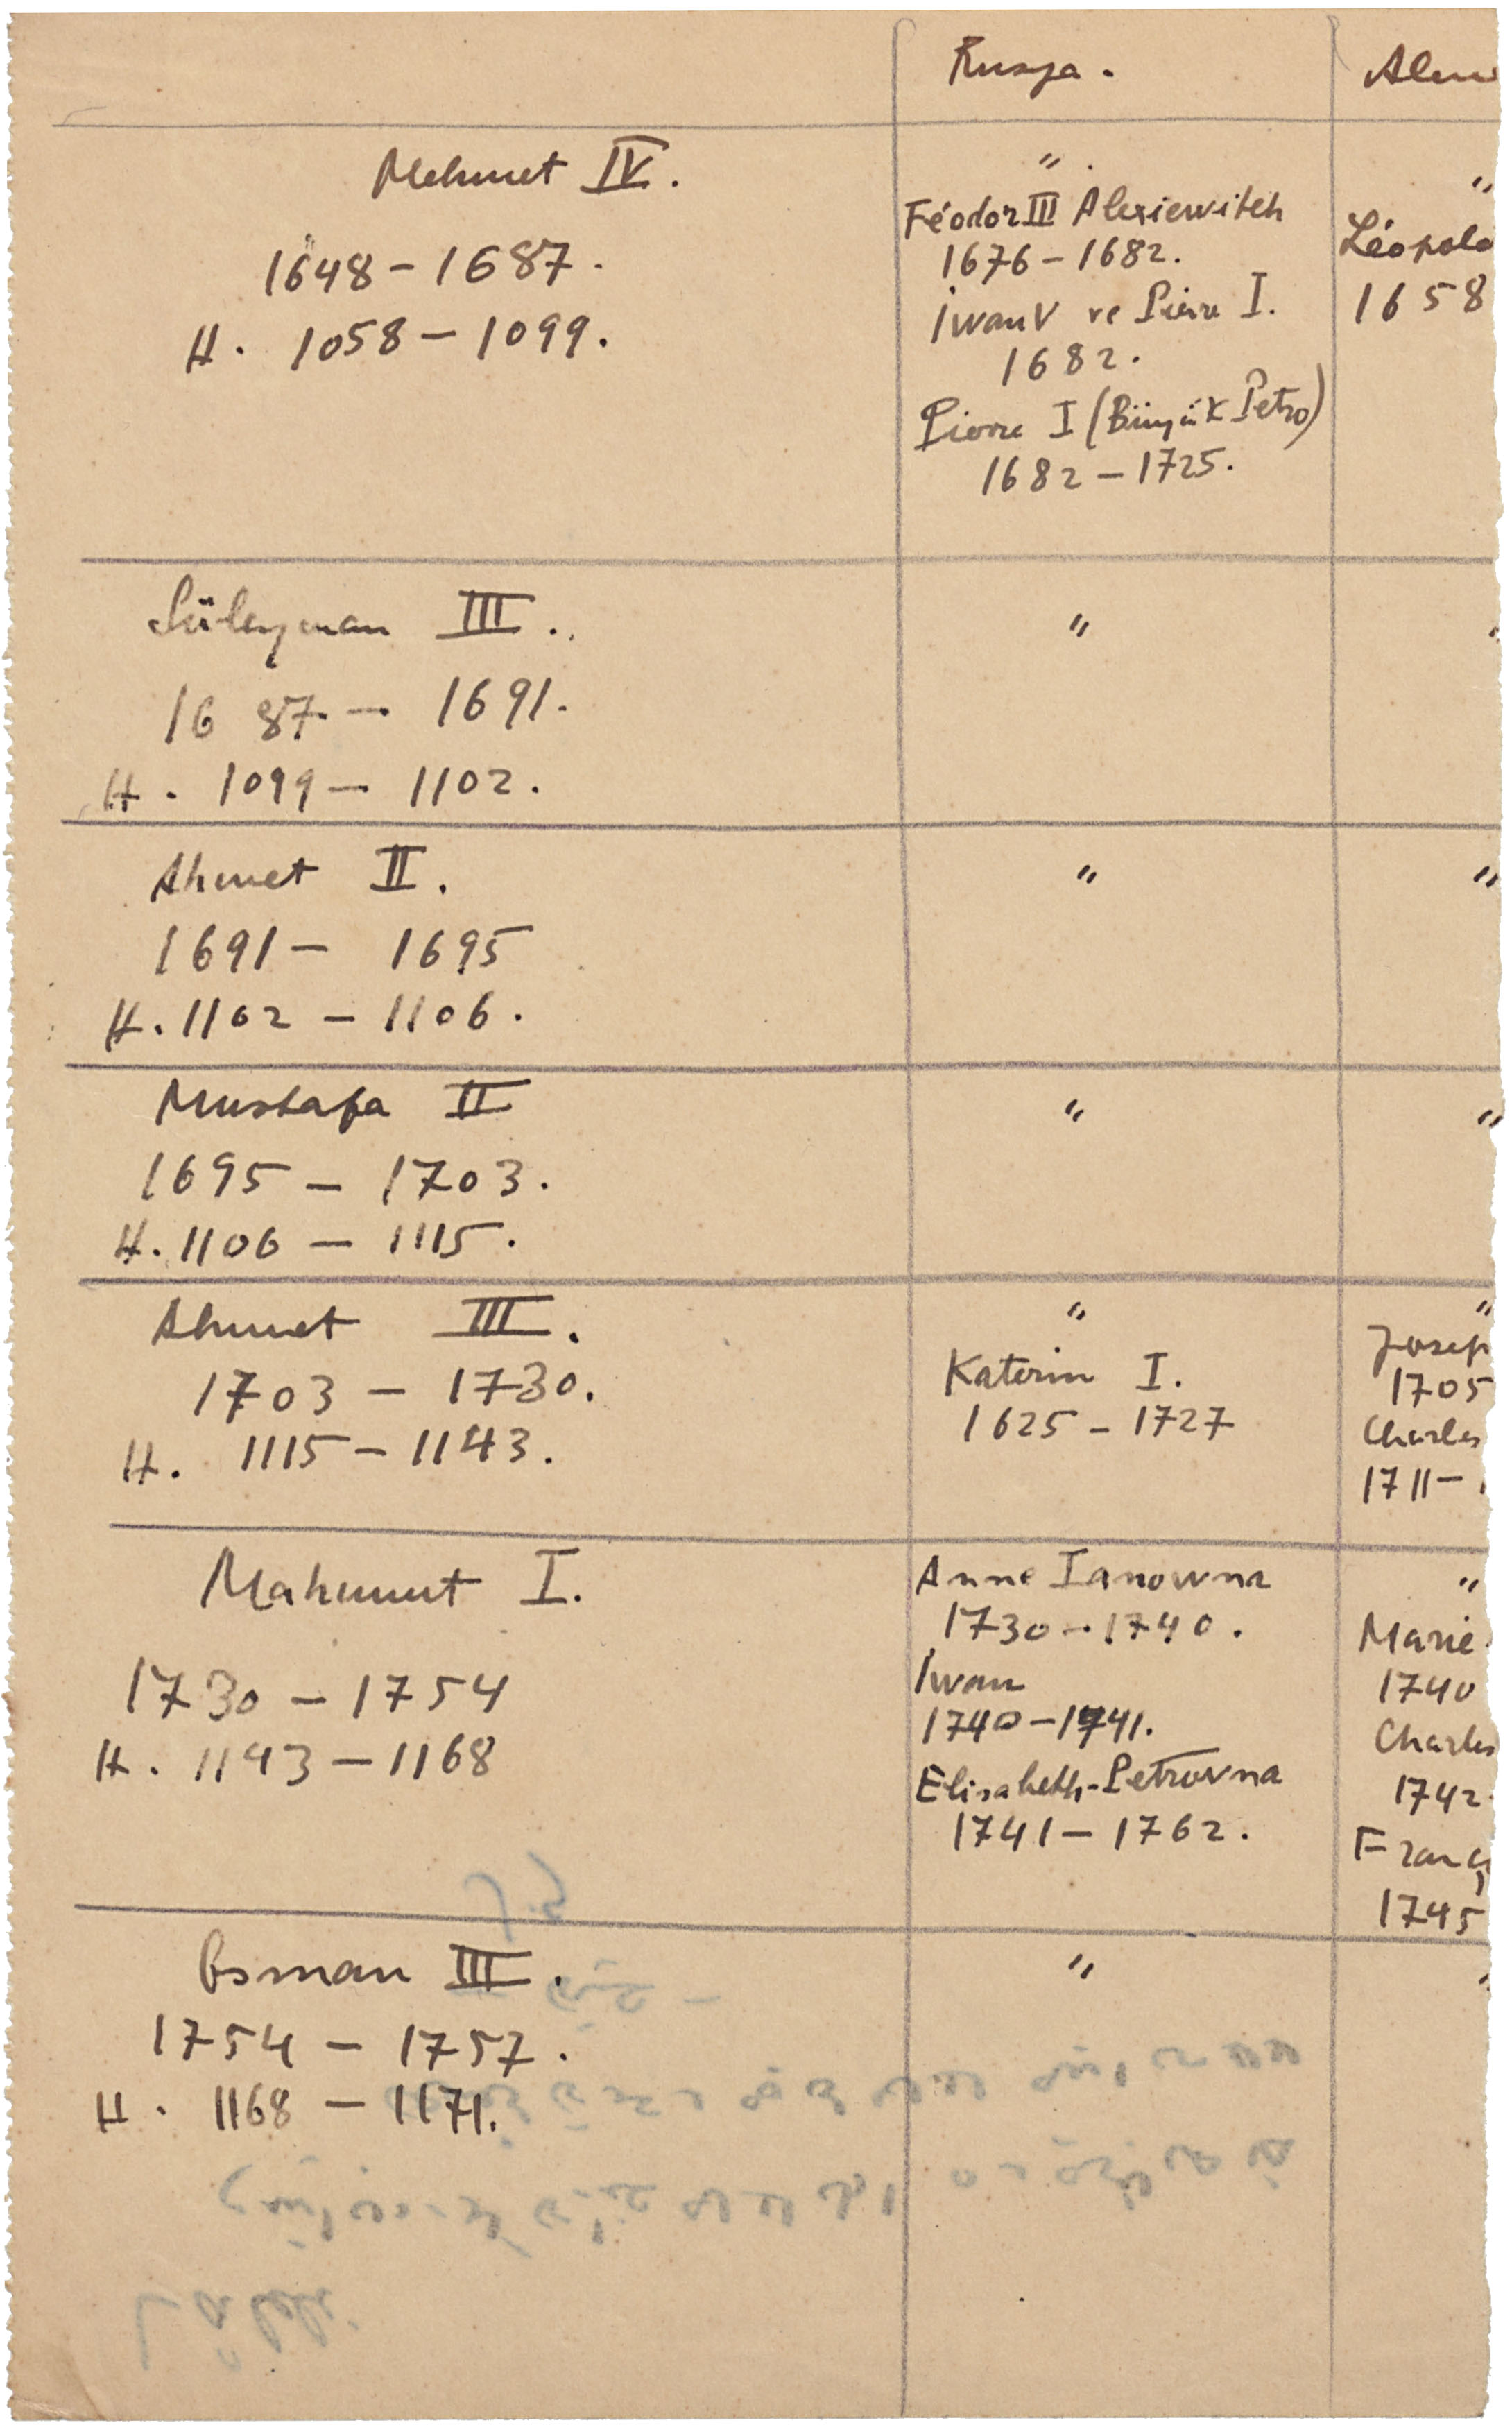 Rusya.
Mehmet IV.
1648 - 1687.
H. 1058 - 1099.
"
Féodor III Alexiewitch
1676 - 1682.
İwan V ve Pierre I.
1682.
Pierre I (Büyük Petro)
1682 - 1725.
"
Léopold
1658
Süleyman III.
1687 - 1691.
H. 1099 - 1102.
"
"
Ahmet II.
1691 - 1695
H. 1102 - 1106.
"
"
Mustafa II
1695 - 1703.
H. 1106 - 1115.
"
"
Ahmet III.
1703 - 1730.
H. 1115 - 1143.
"
Katerin I.
1625 - 1727
"
Josep
1705
Charles
1711 -
Mahmut I.
1730 - 1754
H. 1143 - 1168
Anne Ianowna
1730 - 1740.
İwan
1740 - 1741.
Elisabeth-Petrovna
1741 - 1762.
"
Marie
1740
Charles
1742
Franç
1745
Osman III.
1754 - 1757.
H. 1168 - 1171.
"
"